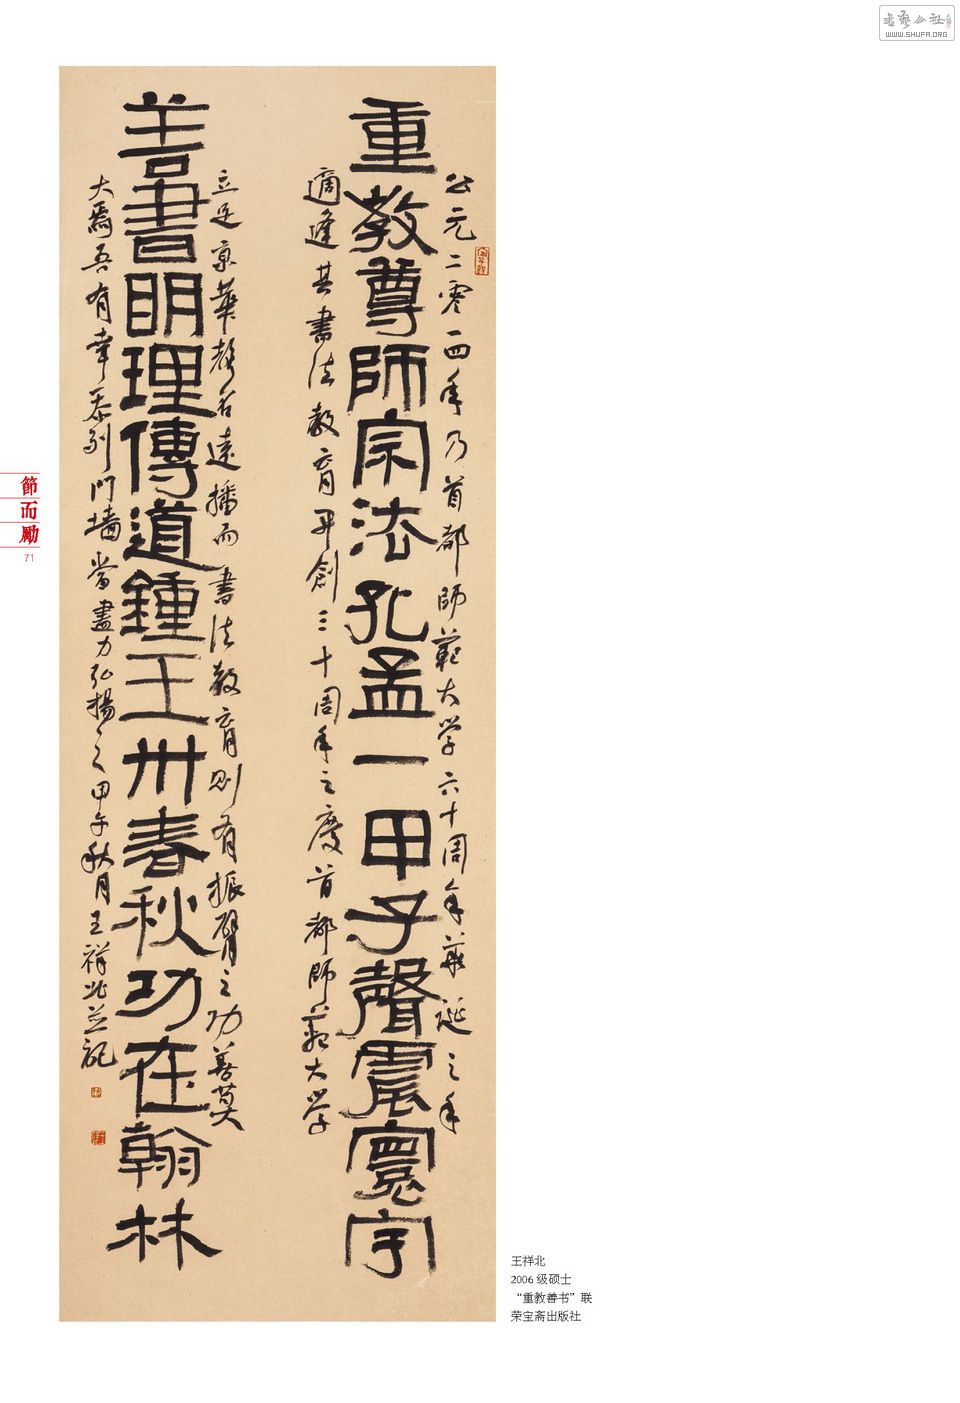 重教尊師宗法孔孟一甲子聲震寰宇
善書明理傳道鍾王卅春秋功在翰林
公元二零一四年乃首都師範大学六十周年華誕之年
適逢其書法教育开創三十周年之慶首都師範大学
立足京華聲名遠播而書法教育則有振臂之功善莫
大焉吾有幸忝列門墻當盡力弘揚之甲午秋月王祥北並記
節而勵
71
王祥北
2006 级硕士
“重教善书”联
荣宝斋出版社
WWW.SHUFA.ORG